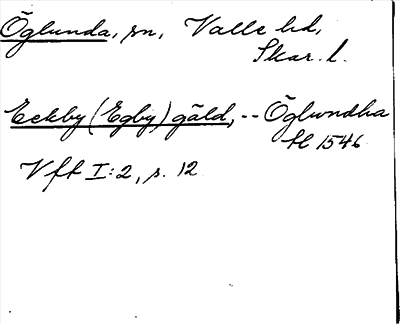 Öglunda, sn, Valle hd,
Skar. l.
Eckby (Egby) gäld, -- Öglwndha
1546
Vft I:2, s. 12